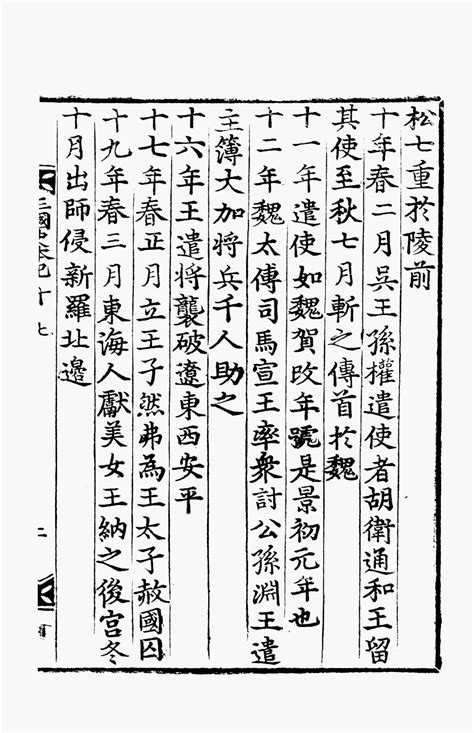 松七重於陵前
十年春二月吳王孫權遣使者胡衛通和王留
其使至秋七月斬之傳首於魏
十一年遣使如魏賀改年號是景初元年也
十二年魏太傅司馬宣王率衆討公孫淵王遣
主簿大加將兵千人助之
十六年王遣將襲破遼東西安平
十七年春正月立王子然弗為王太子赦國囚
十九年春三月東海人獻美女王納之後宮冬
十月出師侵新羅北邊
三國史本紀十七
二